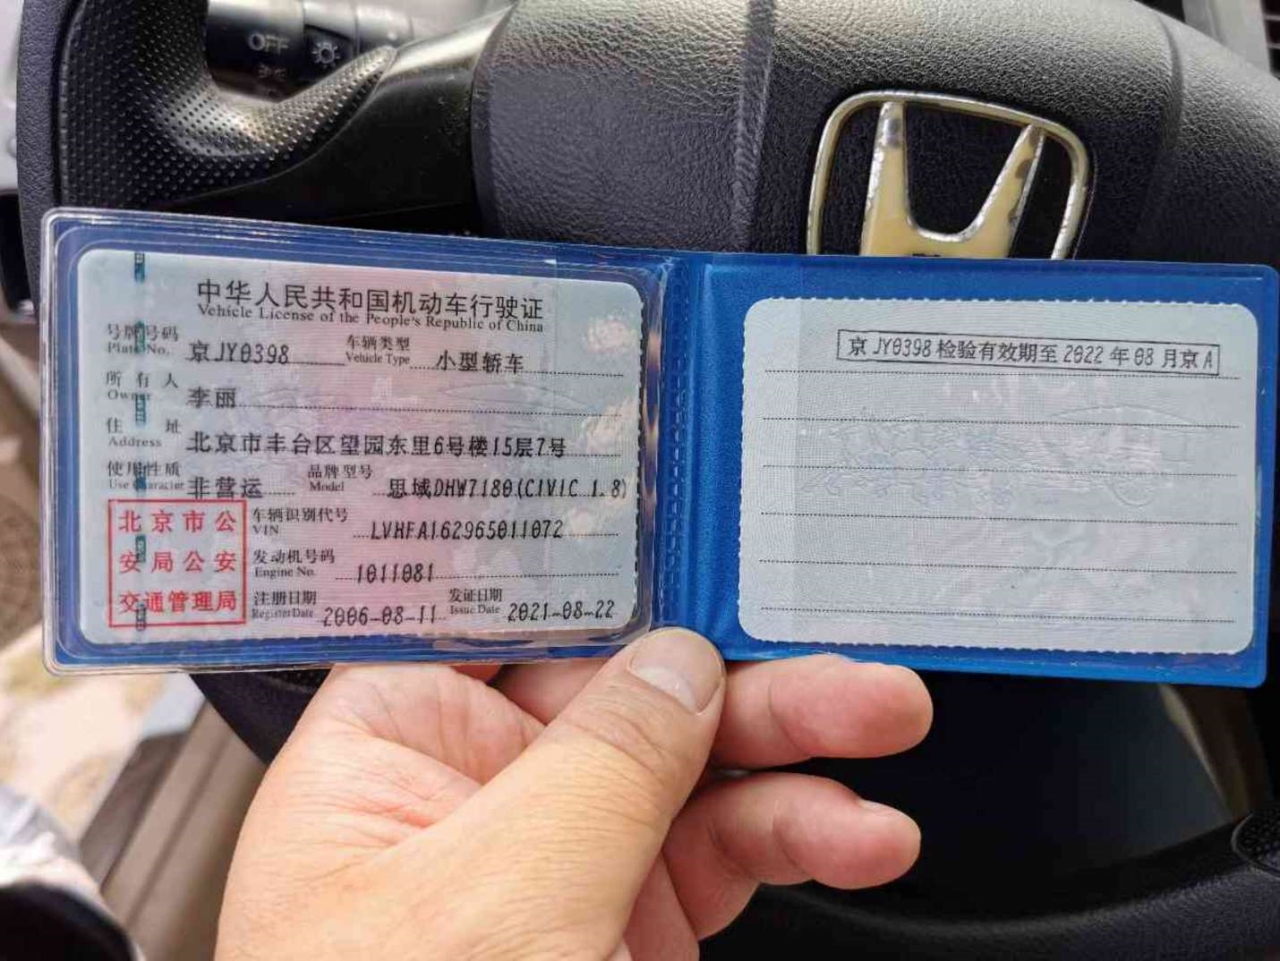 OFF
中华人民共和国机动车行驶证
Vehicle License of the People's Republic of China
号牌号码 京JY0398 车辆类型 小型轿车
Plate No. Vehicle Type
所有人 李丽
Owner
住址 北京市丰台区望园东里6号楼15层7号
Address
使用性质 非营运 品牌型号 思域DHW7180(CIVIC 1.8)
Use Character Model
北京市公
安局公安
交通管理局
车辆识别代号 LVHFA162965011072
VIN
发动机号码 1011081
Engine No.
注册日期 2006-08-11 发证日期 2021-08-22
Register Date Issue Date
京JY0398检验有效期至2022年08月京A